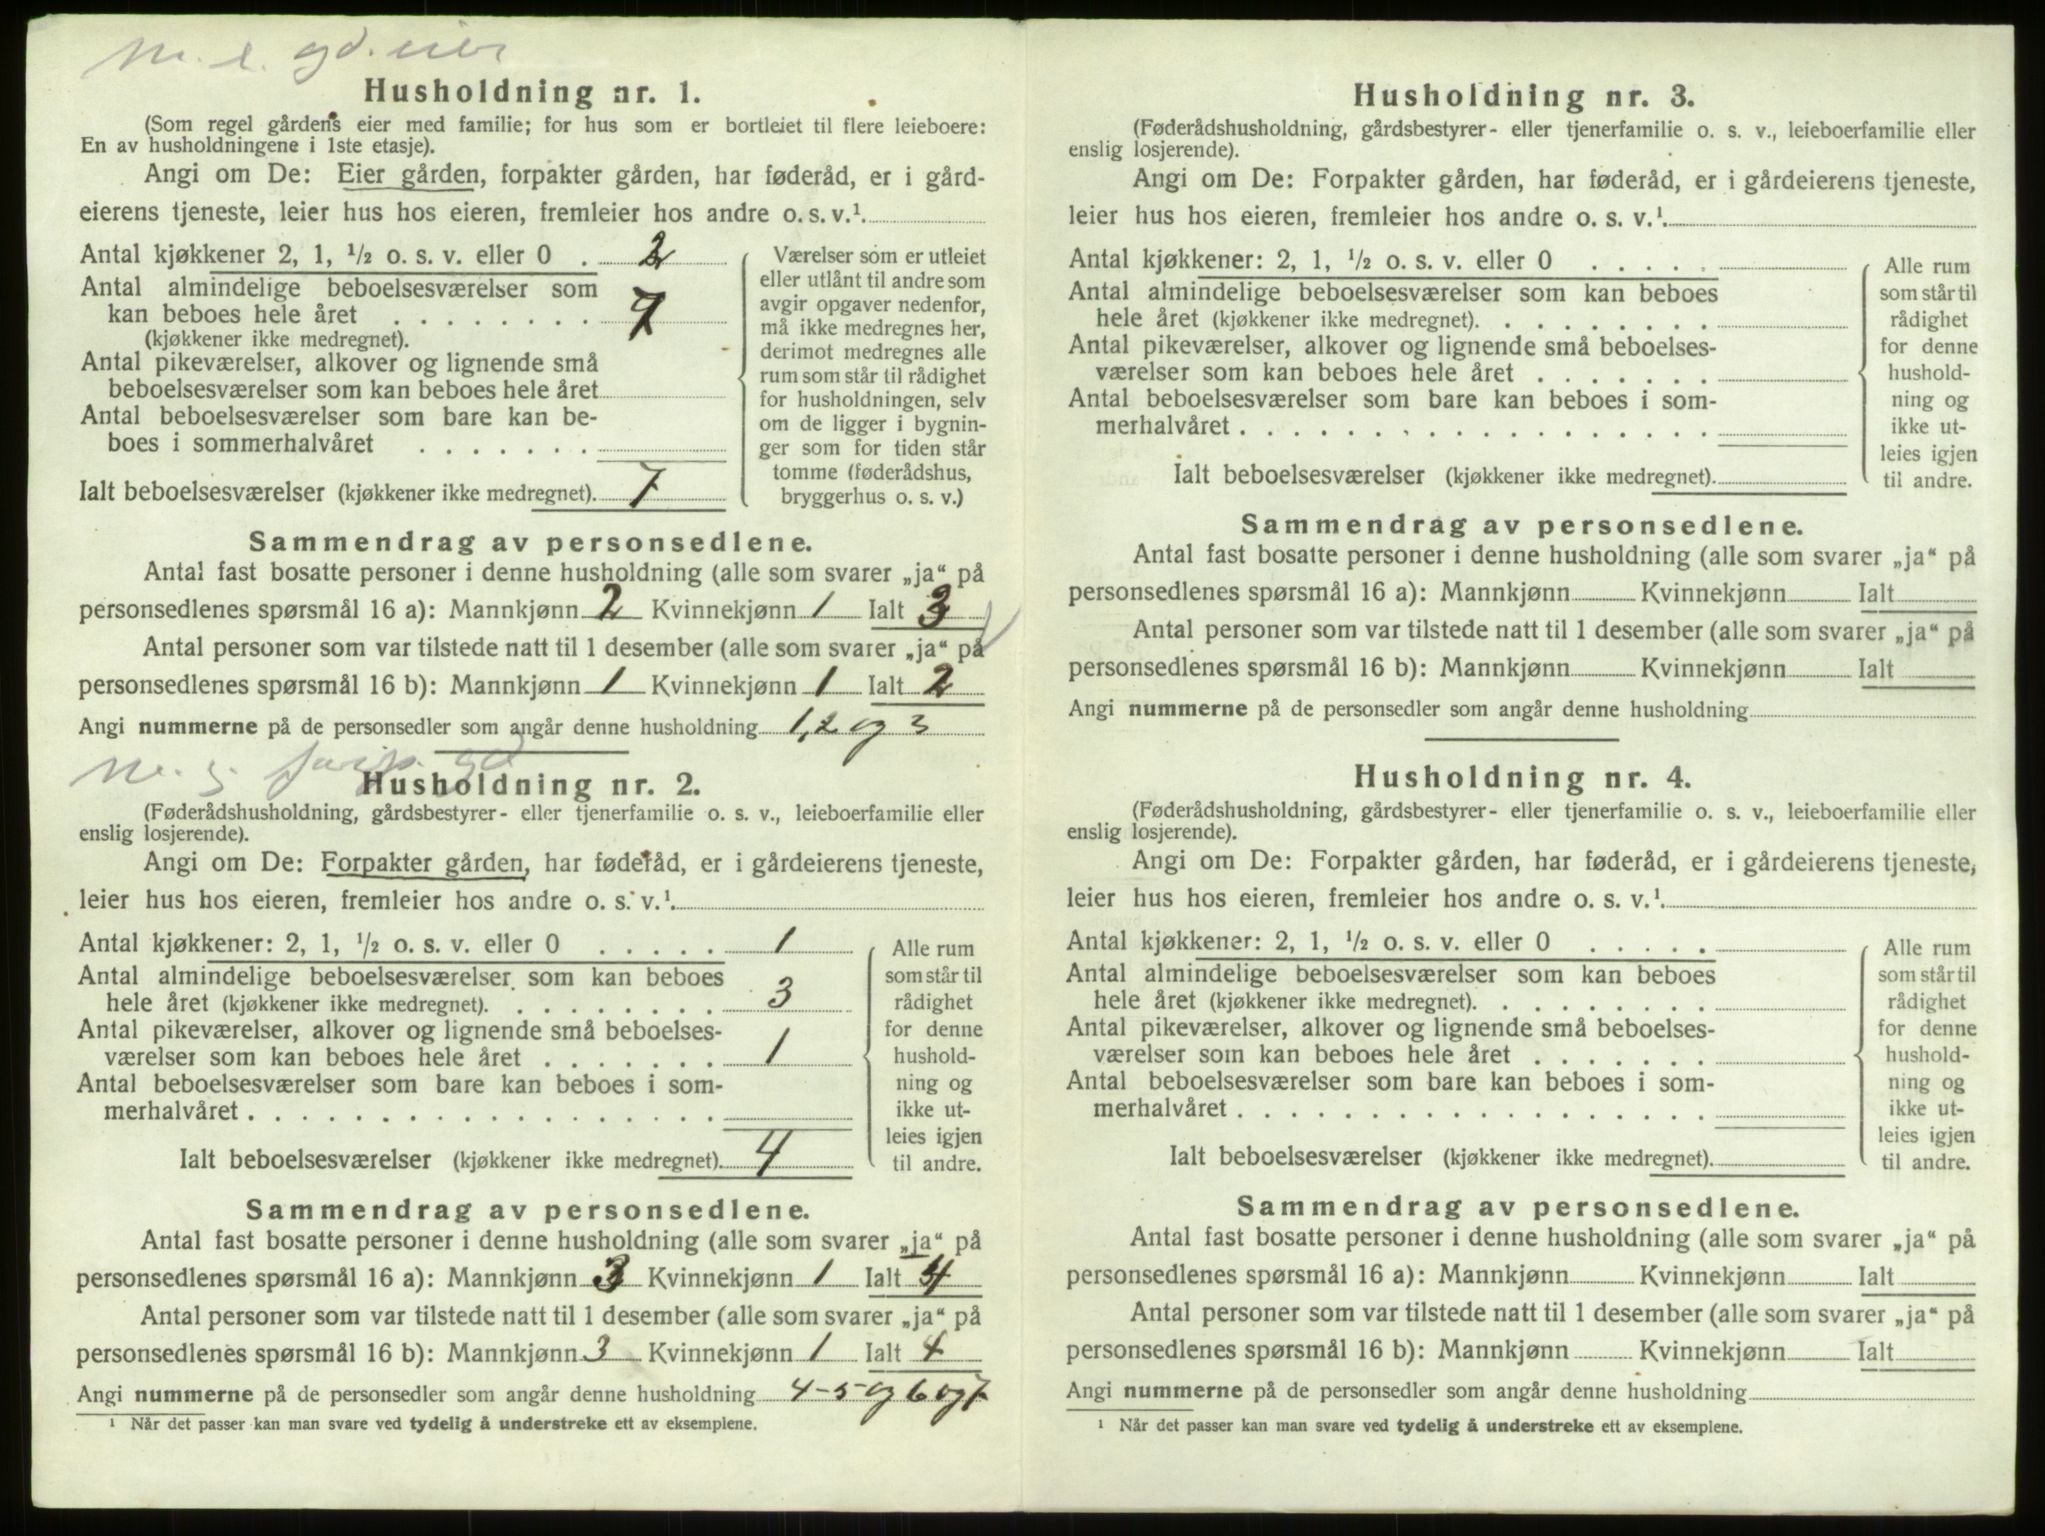 m. e. gd. eier
Husholdning nr. 1.
(Som regel gårdens eier med familie; for hus som er bortleiet til flere leieboere:
En av husholdningene i 1ste etasje).
Angi om De: Eier gården, forpakter gården, har føderåd, er i gård-
eierens tjeneste, leier hus hos eieren, fremleier hos andre o. s. v.¹.
Antal kjøkkener 2, 1, ½ o. s. v. eller 0 . 2
Antal almindelige beboelsesværelser som
kan beboes hele året . . . . . . . . 7
(kjøkkener ikke medregnet).
Antal pikeværelser, alkover og lignende små
beboelsesværelser som kan beboes hele året
Antal beboelsesværelser som bare kan be-
boes i sommerhalvåret . . . . . . .
Ialt beboelsesværelser (kjøkkener ikke medregnet). 7
Værelser som er utleiet
eller utlånt til andre som
avgir opgaver nedenfor,
må ikke medregnes her,
derimot medregnes alle
rum som står til rådighet
for husholdningen, selv
om de ligger i bygnin-
ger som for tiden står
tomme (føderådshus,
bryggerhus o. s. v.)
Sammendrag av personsedlene.
Antal fast bosatte personer i denne husholdning (alle som svarer „ja“ på
personsedlenes spørsmål 16 a): Mannkjønn 2 Kvinnekjønn 1 Ialt 3
Antal personer som var tilstede natt til 1 desember (alle som svarer „ja“ på
personsedlenes spørsmål 16 b): Mannkjønn 1 Kvinnekjønn 1 Ialt 2
Angi nummerne på de personsedler som angår denne husholdning 1, 2 og 3
Husholdning nr. 2.
(Føderådshusholdning, gårdsbestyrer- eller tjenerfamilie o. s. v., leieboerfamilie eller
enslig losjerende).
Angi om De: Forpakter gården, har føderåd, er i gårdeierens tjeneste,
leier hus hos eieren, fremleier hos andre o. s. v.¹.
Antal kjøkkener: 2, 1, ½ o. s. v. eller 0 . . . . . 1
Antal almindelige beboelsesværelser som kan beboes
hele året (kjøkkener ikke medregnet). . . . . . . . . 3
Antal pikeværelser, alkover og lignende små beboelses-
værelser som kan beboes hele året . . . . . . . 1
Antal beboelsesværelser som bare kan beboes i som-
merhalvåret . . . . . . . . . . . . . . . . . .
Ialt beboelsesværelser (kjøkkener ikke medregnet). 4
Alle rum
som står til
rådighet
for denne
hushold-
ning og
ikke ut-
leies igjen
til andre.
Sammendrag av personsedlene.
Antal fast bosatte personer i denne husholdning (alle som svarer „ja“ på
personsedlenes spørsmål 16 a): Mannkjønn 3 Kvinnekjønn 1 Ialt 4
Antal personer som var tilstede natt til 1 desember (alle som svarer „ja“ på
personsedlenes spørsmål 16 b): Mannkjønn 3 Kvinnekjønn 1 Ialt 4
Angi nummerne på de personsedler som angår denne husholdning 4-5 og 6 og 7
¹ Når det passer kan man svare ved tydelig å understreke ett av eksemplene.
Husholdning nr. 3.
(Føderådshusholdning, gårdsbestyrer- eller tjenerfamilie o. s. v., leieboerfamilie eller
enslig losjerende).
Angi om De: Forpakter gården, har føderåd, er i gårdeierens tjeneste,
leier hus hos eieren, fremleier hos andre o. s. v.¹.
Antal kjøkkener: 2, 1, ½ o. s. v. eller 0 . . . . .
Antal almindelige beboelsesværelser som kan beboes
hele året (kjøkkener ikke medregnet). . . . . . . . .
Antal pikeværelser, alkover og lignende små beboelses-
værelser som kan beboes hele året . . . . . . .
Antal beboelsesværelser som bare kan beboes i som-
merhalvåret . . . . . . . . . . . . . . . . . .
Ialt beboelsesværelser (kjøkkener ikke medregnet).
Alle rum
som står til
rådighet
for denne
hushold-
ning og
ikke ut-
leies igjen
til andre.
Sammendrag av personsedlene.
Antal fast bosatte personer i denne husholdning (alle som svarer „ja“ på
personsedlenes spørsmål 16 a): Mannkjønn Kvinnekjønn Ialt
Antal personer som var tilstede natt til 1 desember (alle som svarer „ja“ på
personsedlenes spørsmål 16 b): Mannkjønn Kvinnekjønn Ialt
Angi nummerne på de personsedler som angår denne husholdning
Husholdning nr. 4.
(Føderådshusholdning, gårdsbestyrer- eller tjenerfamilie o. s. v., leieboerfamilie eller
enslig losjerende).
Angi om De: Forpakter gården, har føderåd, er i gårdeierens tjeneste,
leier hus hos eieren, fremleier hos andre o. s. v.¹.
Antal kjøkkener: 2, 1, ½ o. s. v. eller 0 . . . . .
Antal almindelige beboelsesværelser som kan beboes
hele året (kjøkkener ikke medregnet). . . . . . . . .
Antal pikeværelser, alkover og lignende små beboelses-
værelser som kan beboes hele året . . . . . . .
Antal beboelsesværelser som bare kan beboes i som-
merhalvåret . . . . . . . . . . . . . . . . . .
Ialt beboelsesværelser (kjøkkener ikke medregnet).
Alle rum
som står til
rådighet
for denne
hushold-
ning og
ikke ut-
leies igjen
til andre.
Sammendrag av personsedlene.
Antal fast bosatte personer i denne husholdning (alle som svarer „ja“ på
personsedlenes spørsmål 16 a): Mannkjønn Kvinnekjønn Ialt
Antal personer som var tilstede natt til 1 desember (alle som svarer „ja“ på
personsedlenes spørsmål 16 b): Mannkjønn Kvinnekjønn Ialt
Angi nummerne på de personsedler som angår denne husholdning
¹ Når det passer kan man svare ved tydelig å understreke ett av eksemplene.